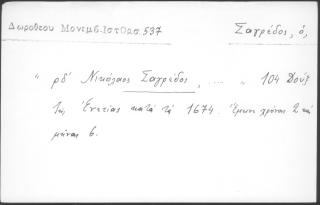 Δωροθέου Μονεμβ. Ἱστορ. 537
Σαγρέδος, ὁ,
" ρδ' Νικόλαος Σαγρέδος, ... " 104 Δοὺξ
τῆς Ἐνετίας κατὰ τὰ 1674. Ἔμεινε χρόνους 2 καὶ
μῆνας 6.